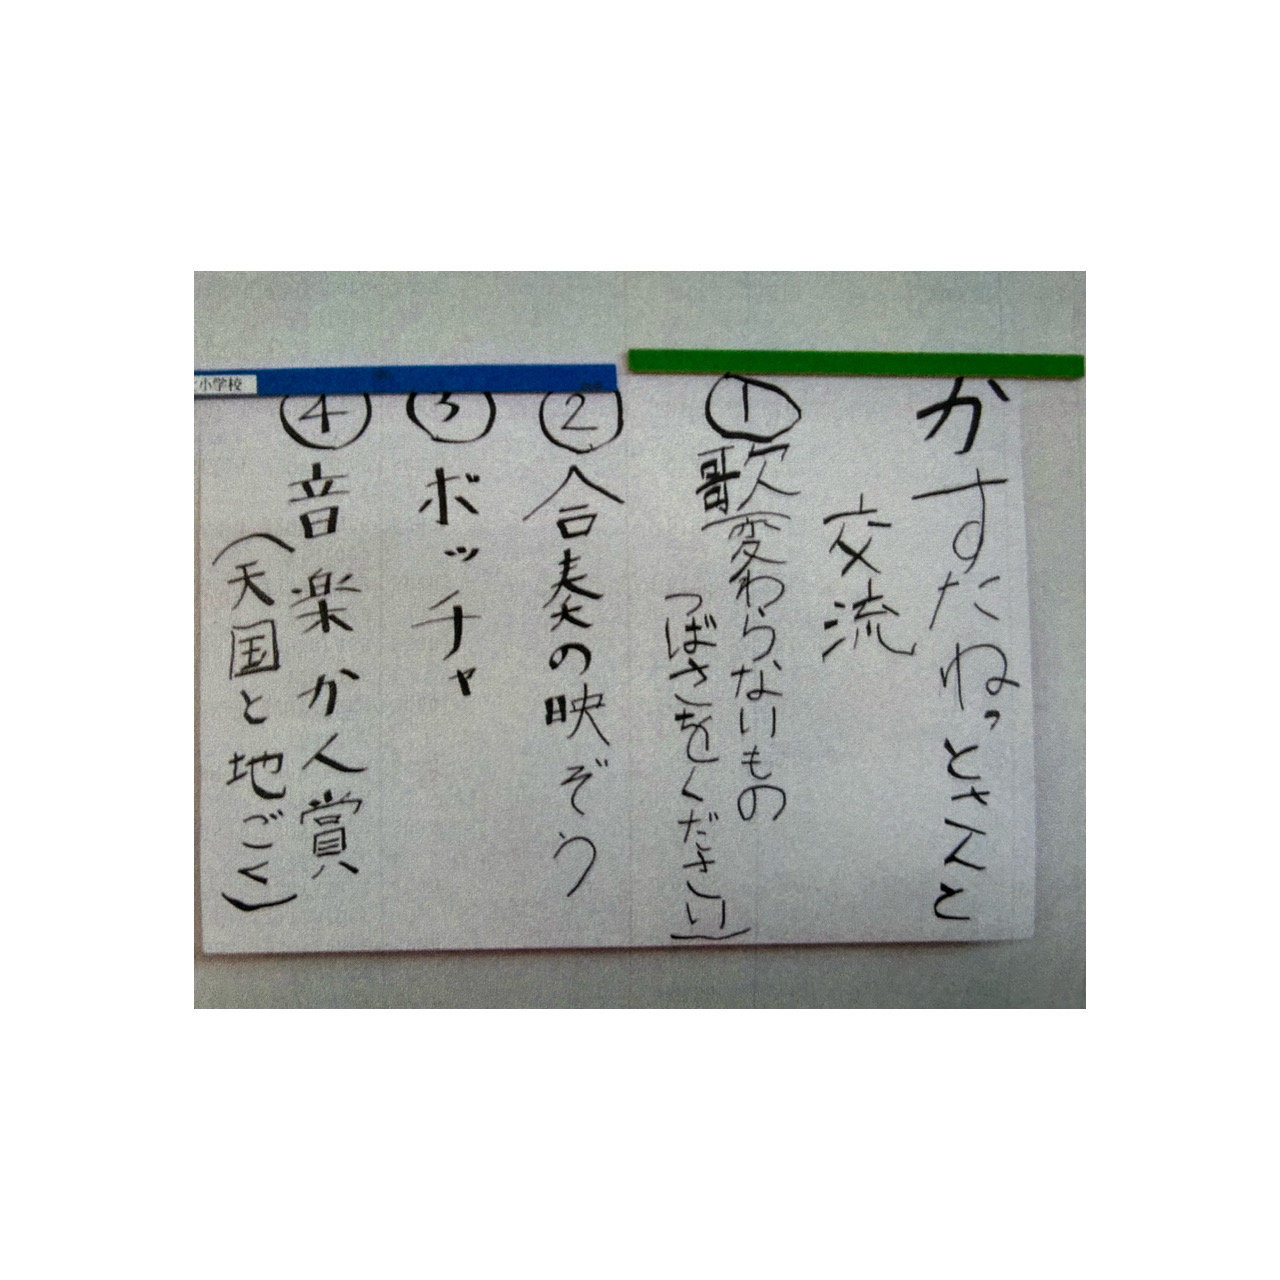 かすたねっとさんと
交流
① 歌 変わらないもの
つばさをください)
② 合奏の映ぞう
③ ボッチャ
④ 音楽か人賞
(天国と地ごく)
小学校